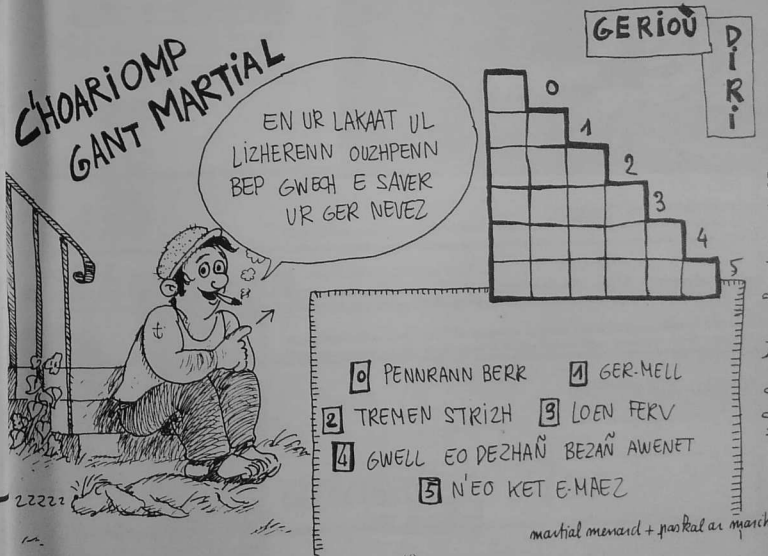 C'HOARIOMP
GANT MARTIAL
EN UR LAKAAT UL
LIZHERENN OUZHPENN
BEP GWECH E SAVER
UR GER NEVEZ
GERIOÙ
DIRI
0
1
2
3
4
5
0 PENNRANN BERR 1 GER-MELL
2 TREMEN STRIZH 3 LOEN FERV
4 GWELL EO DEZHAÑ BEZAÑ AWENET
5 N'EO KET E-MAEZ
zzzzz
martial menard + paskal an